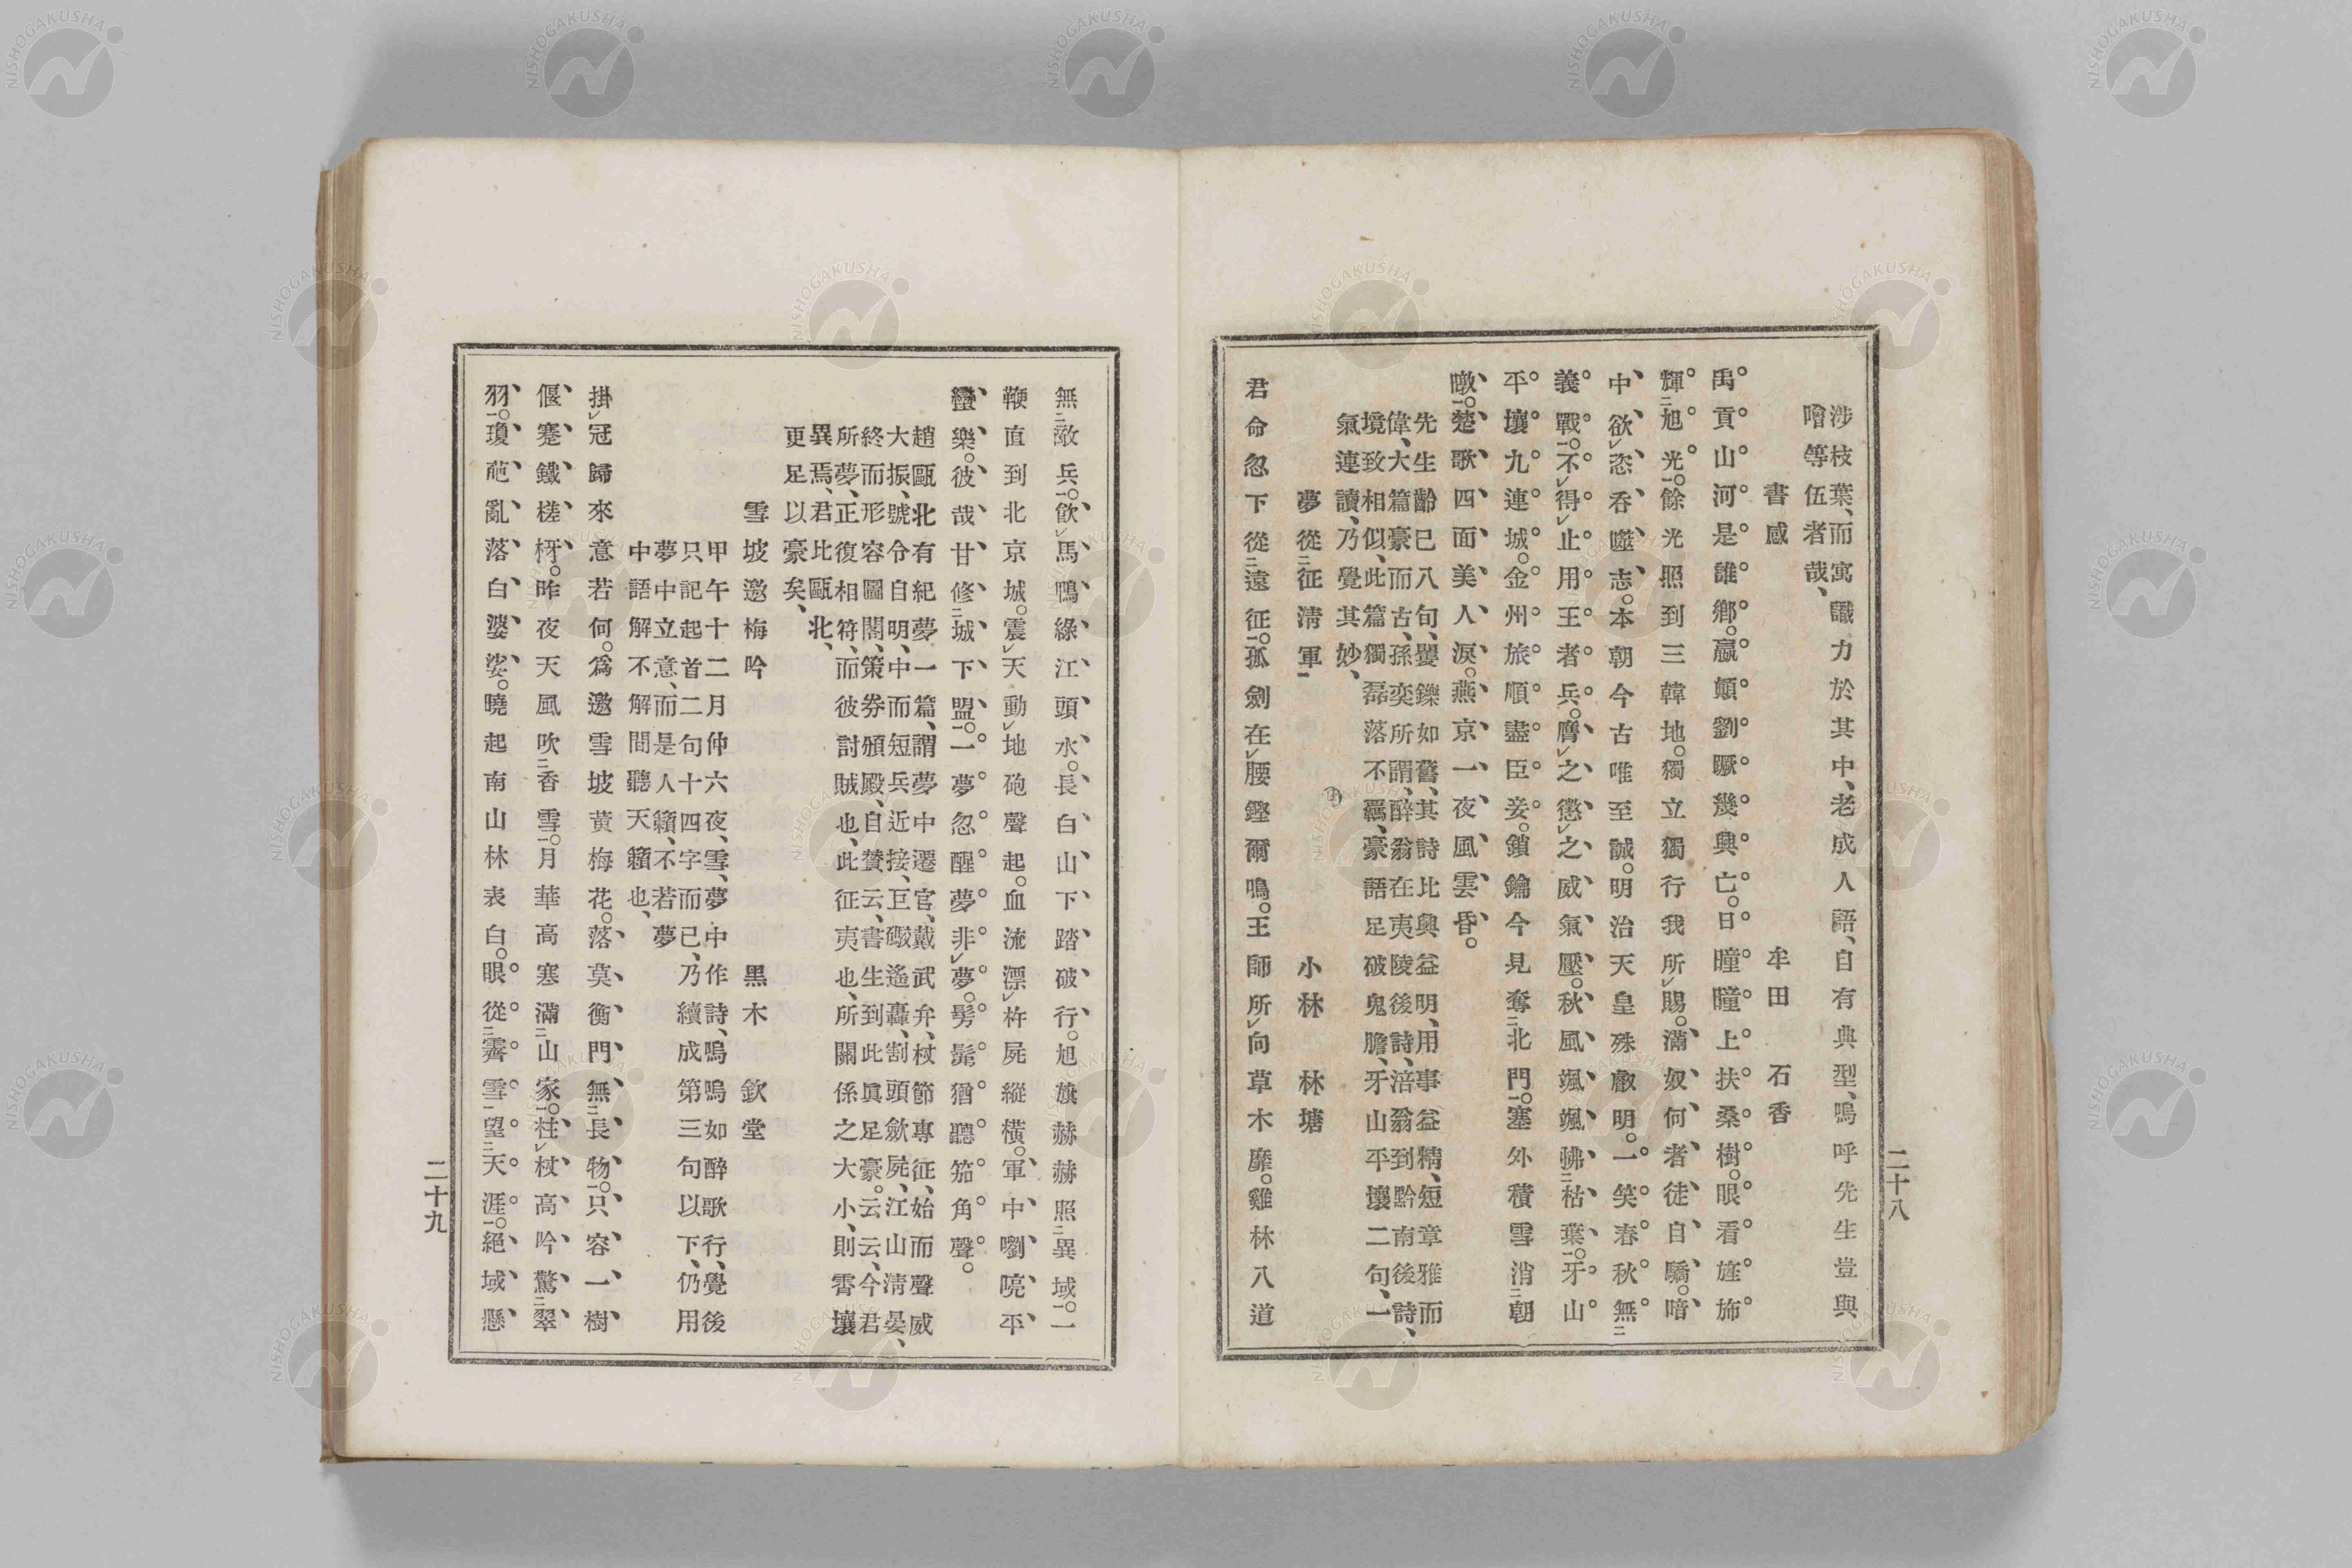 涉枝葉、而寓識力於其中、老成人語、自有典型、嗚呼先生豈與
噲等伍者哉、
書感　牟田石香
禹貢山河是誰鄉。嬴顛劉蹶幾興亡。日曈曈上扶桑樹。眼看旌旆
輝二旭光一。餘光照到三韓地。獨立獨行我所レ賜。滿奴何者徒自驕。暗
中欲レ恣吞噬志。本朝今古唯至誠。明治天皇殊叡明。一笑春秋無二
義戰一。不レ得レ止用王者兵。膺レ之懲レ之威氣壓。秋風颯颯驅二枯葉一。牙山
平壤九連城。金州旅順盡臣妾。鎖鑰今見奪二北門一。塞外積雪消二朝
暾一。楚歌四面美人淚。燕京一夜風雲昏。
先生齡已八句、矍鑠如舊、其詩比興益明、用事益精、短章雅而
偉、大篇豪而古、孫奕所謂、醉翁在夷陵後詩、涪翁到黔南後詩、
境致相似、此篇獨磊落不羈、豪語足破鬼膽、牙山平壤二句、一
氣連讀、乃覺其妙、
夢從二征清軍一　小林林塘
君命忽下從二遠征一。孤劍在レ腰鏗爾鳴。王師所レ向草木靡。雞林八道
二十八
無二敵兵一。飮レ馬鴨綠江頭水。長白山下踏破行。旭旗赫赫照二異域一。一
鞭直到北京城。震レ天動レ地砲聲起。血流漂レ杵屍縱橫。軍中嚠喨平
蠻樂。彼哉甘修二城下盟一。一夢忽醒夢非レ夢。髣髴猶聽笳角聲。
趙甌北有紀夢一篇、謂夢中遷官、戴武弁、杖節專征、始而聲威
大振、號令自明、中而短兵近接、巨礮遙轟、割頭歛屍、江山淸晏、
終而形容圖閣、策券頒殿、自贊云、書生到此眞足豪。云云、今君
所夢、正復相符、而彼討賊也、此征夷也、所關係之大小、則霄壤
異焉、君比甌北、
更足以豪矣、
雪坡邀梅吟　黑木欽堂
甲午十二月仲六夜、雪、夢中作詩、嗚嗚如醉歌行、覺後
只記起首二句十四字而已、乃續成第三句以下、仍用
夢中立意、而是人籟、不若夢
中語解不解間聽天籟也、
掛レ冠歸來意若何。爲邀雪坡黃梅花。落莫衡門無二長物一。只容一樹
偃蹇鐵槎枒。昨夜天風吹二香雪一。月華高塞滿二山家一。柱レ杖高吟驚二翠
羽一。瓊葩亂落白婆娑。曉起南山林表白。眼從二霽雪一望二天涯一。絕域懸
二十九